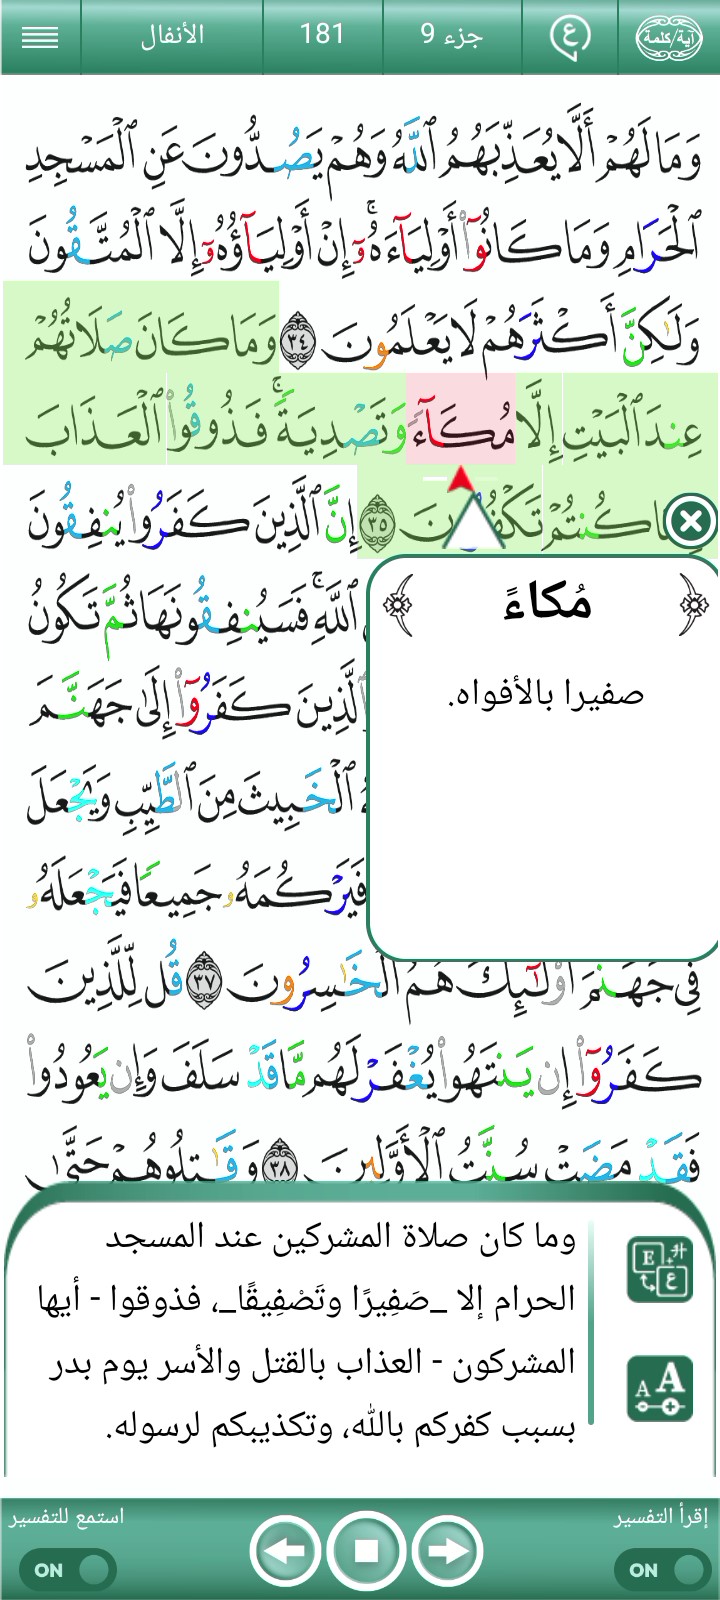 آية/كلمة
ع
جزء 9
181
الأنفال
وَمَا لَهُمْ أَلَّا يُعَذِّبَهُمُ ٱللَّهُ وَهُمْ يَصُدُّونَ عَنِ ٱلْمَسْجِدِ
ٱلْحَرَامِ وَمَا كَانُوٓا۟ أَوْلِيَآءَهُۥٓ ۚ إِنْ أَوْلِيَآؤُهُۥٓ إِلَّا ٱلْمُتَّقُونَ
وَلَٰكِنَّ أَكْثَرَهُمْ لَا يَعْلَمُونَ ٣٤ وَمَا كَانَ صَلَاتُهُمْ
عِندَ ٱلْبَيْتِ إِلَّا مُكَآءً وَتَصْدِيَةً ۚ فَذُوقُوا۟ ٱلْعَذَابَ
كُنتُمْ تَكْفُرُونَ ٣٥ إِنَّ ٱلَّذِينَ كَفَرُوا۟ يُنفِقُونَ
ٱللَّهِ ۚ فَسَيُنفِقُونَهَا ثُمَّ تَكُونُ
ٱلَّذِينَ كَفَرُوٓا۟ إِلَىٰ جَهَنَّمَ
ٱلْخَبِيثَ مِنَ ٱلطَّيِّبِ وَيَجْعَلَ
فَيَرْكُمَهُۥ جَمِيعًا فَيَجْعَلَهُۥ
فِى جَهَنَّمَ أُو۟لَٰٓئِكَ هُمُ ٱلْخَٰسِرُونَ ٣٧ قُل لِّلَّذِينَ
كَفَرُوٓا۟ إِن يَنتَهُوا۟ يُغْفَرْ لَهُم مَّا قَدْ سَلَفَ وَإِن يَعُودُوا۟
فَقَدْ مَضَتْ سُنَّتُ ٱلْأَوَّلِينَ ٣٨ وَقَٰتِلُوهُمْ حَتَّىٰ
مُكاءً
صفيرا بالأفواه.
وما كان صلاة المشركين عند المسجد
الحرام إلا _صَفِيرًا وتَصْفِيقًا_، فذوقوا - أيها
المشركون - العذاب بالقتل والأسر يوم بدر
بسبب كفركم بالله، وتكذيبكم لرسوله.
E
ع
A A
إقرأ التفسير
ON
استمع للتفسير
ON